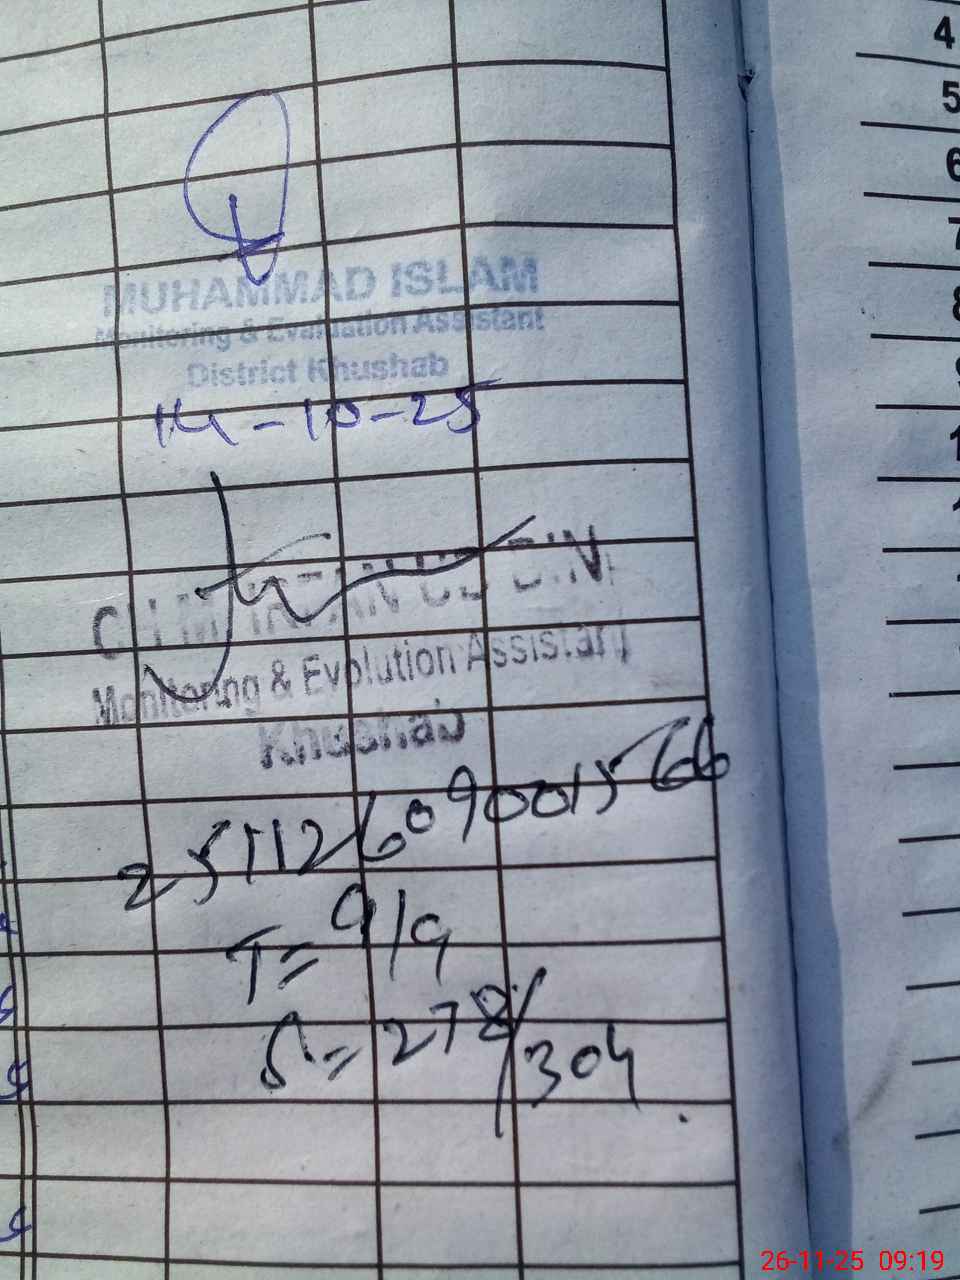 MUHAMMAD ISLAM
Monitoring & Evaluation Assistant
District Khushab
14-10-25
CH M IRFAN UD DIN
Monitoring & Evolution Assistant
Khushab
25112609001566
T= 9/9
S = 278/304
4
5
6
7
8
9
26-11-25 09:19